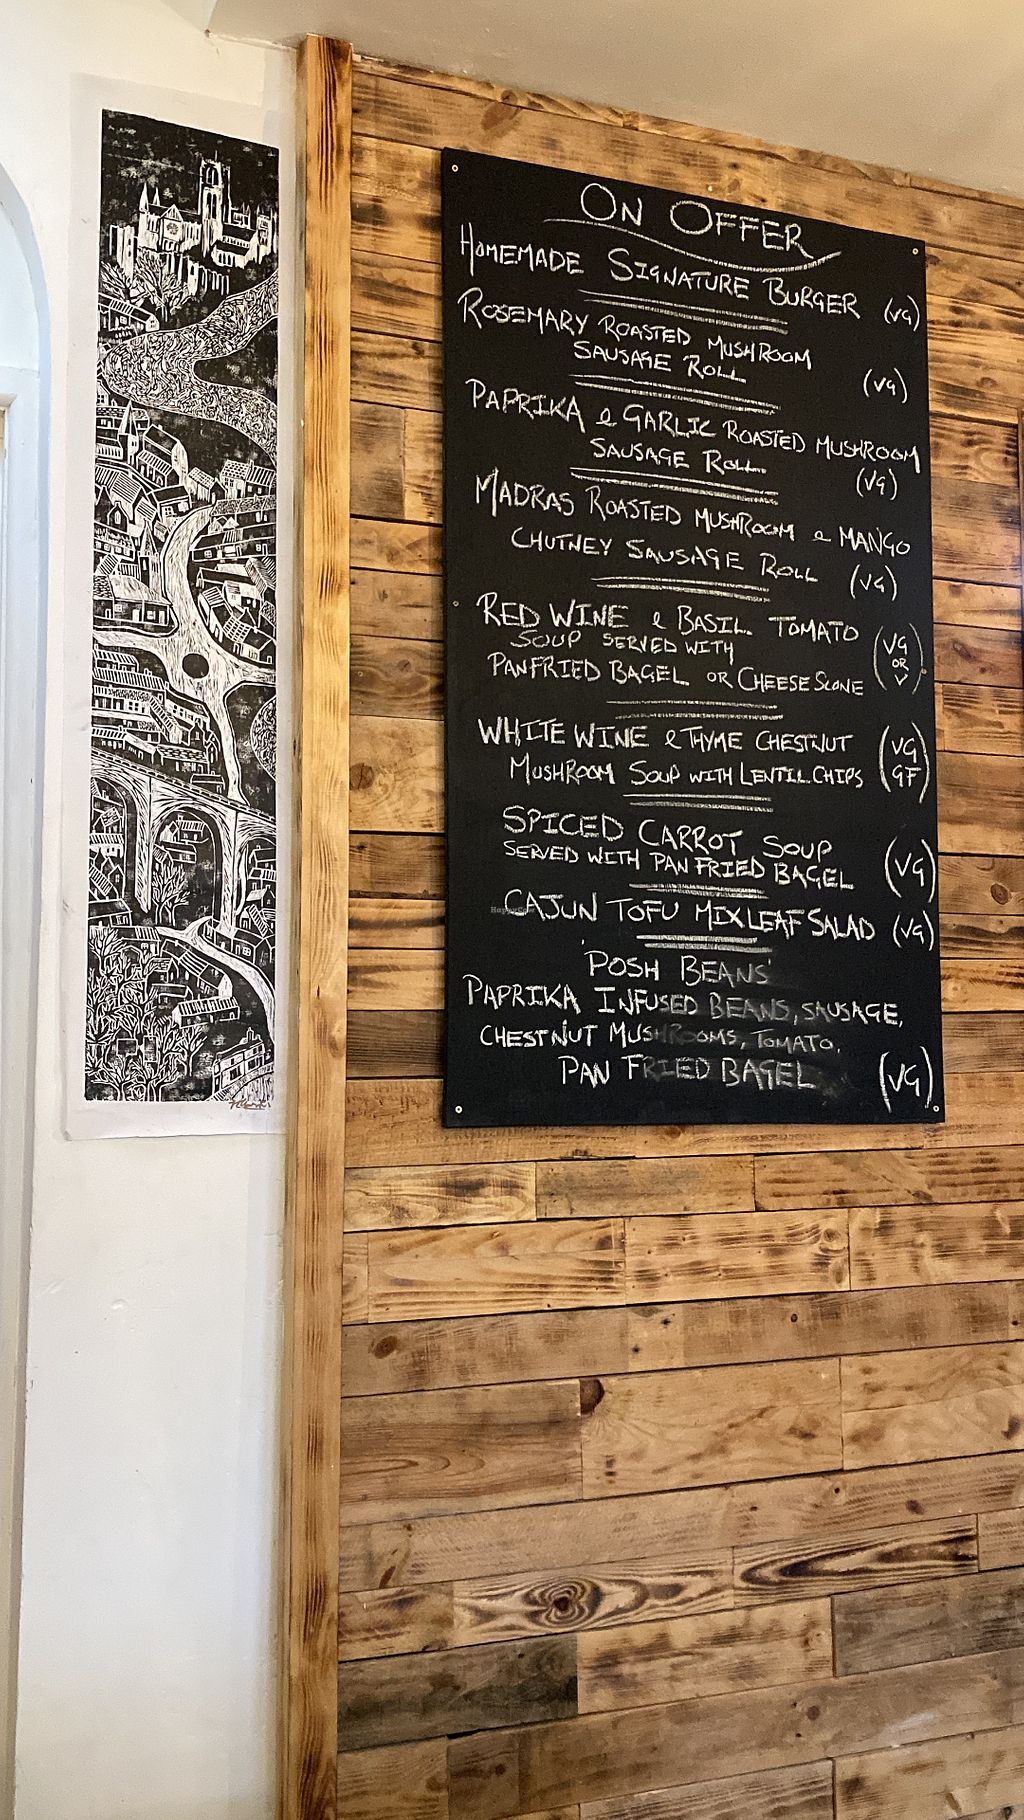 ON OFFER
HOMEMADE SIGNATURE BURGER (VG)
ROSEMARY ROASTED MUSHROOM
SAUSAGE ROLL (VG)
PAPRIKA & GARLIC ROASTED MUSHROOM
SAUSAGE ROLL (VG)
MADRAS ROASTED MUSHROOM & MANGO
CHUTNEY SAUSAGE ROLL (VG)
RED WINE & BASIL TOMATO
SOUP SERVED WITH
PANFRIED BAGEL OR CHEESE SCONE
(VG
OR
V)
WHITE WINE & THYME CHESTNUT
MUSHROOM SOUP WITH LENTIL CHIPS
(VG
GF)
SPICED CARROT SOUP
SERVED WITH PAN FRIED BAGEL (VG)
HappyCow
CAJUN TOFU MIXLEAF SALAD (VG)
'POSH BEANS'
PAPRIKA INFUSED BEANS, SAUSAGE,
CHESTNUT MUSHROOMS, TOMATO,
PAN FRIED BAGEL (VG)